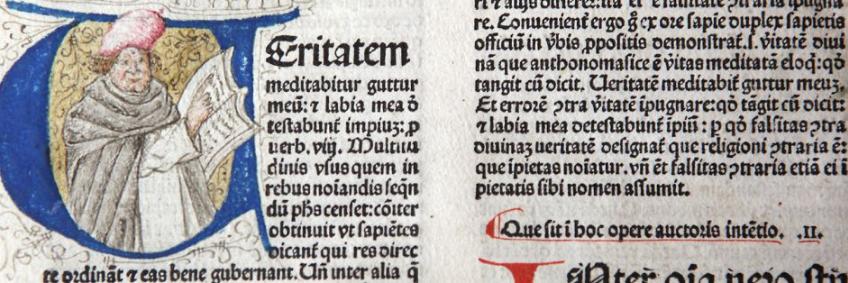 VEritatem
meditabitur guttur
meū: ⁊ labia mea ð
testabunt̃ impiuz: ꝓ
uerb. viij. Multitu
dinis vsus quem in
rebus noīandis seq̄n
dū ph̄s censet: cōiter
obtinuit vt sapiētes
dicant̃ qui res direc
te ordināt ⁊ eas bene gubernant. Uñ inter alia q̄
re. Conuenient̃ ergo q̄ ex ore sapiē duplex sapiētis
officiū in v̄bis ꝓpositis demonstrat̃. s. v̄itatē diui
nā que anthonomasice ē v̄itas meditatā eloq̄: qð
tangit cū dicit. Ueritatē meditabit̃ guttur meuz.
Et errorē ꝯtra v̄itatē īpugnare: qð tāgit cū dicit:
⁊ labia mea detestabunt̃ īpiū: p qð falsitas ꝯtra
diuinaz ueritatē designat̃ que religioni ꝯtraria ē:
que īpietas noīatur. vñ ēt falsitas ꝯtraria etiā ei ī
pietatis sibi nomen assumit.
Que sit ī hoc opere auctoris intētio. .II.